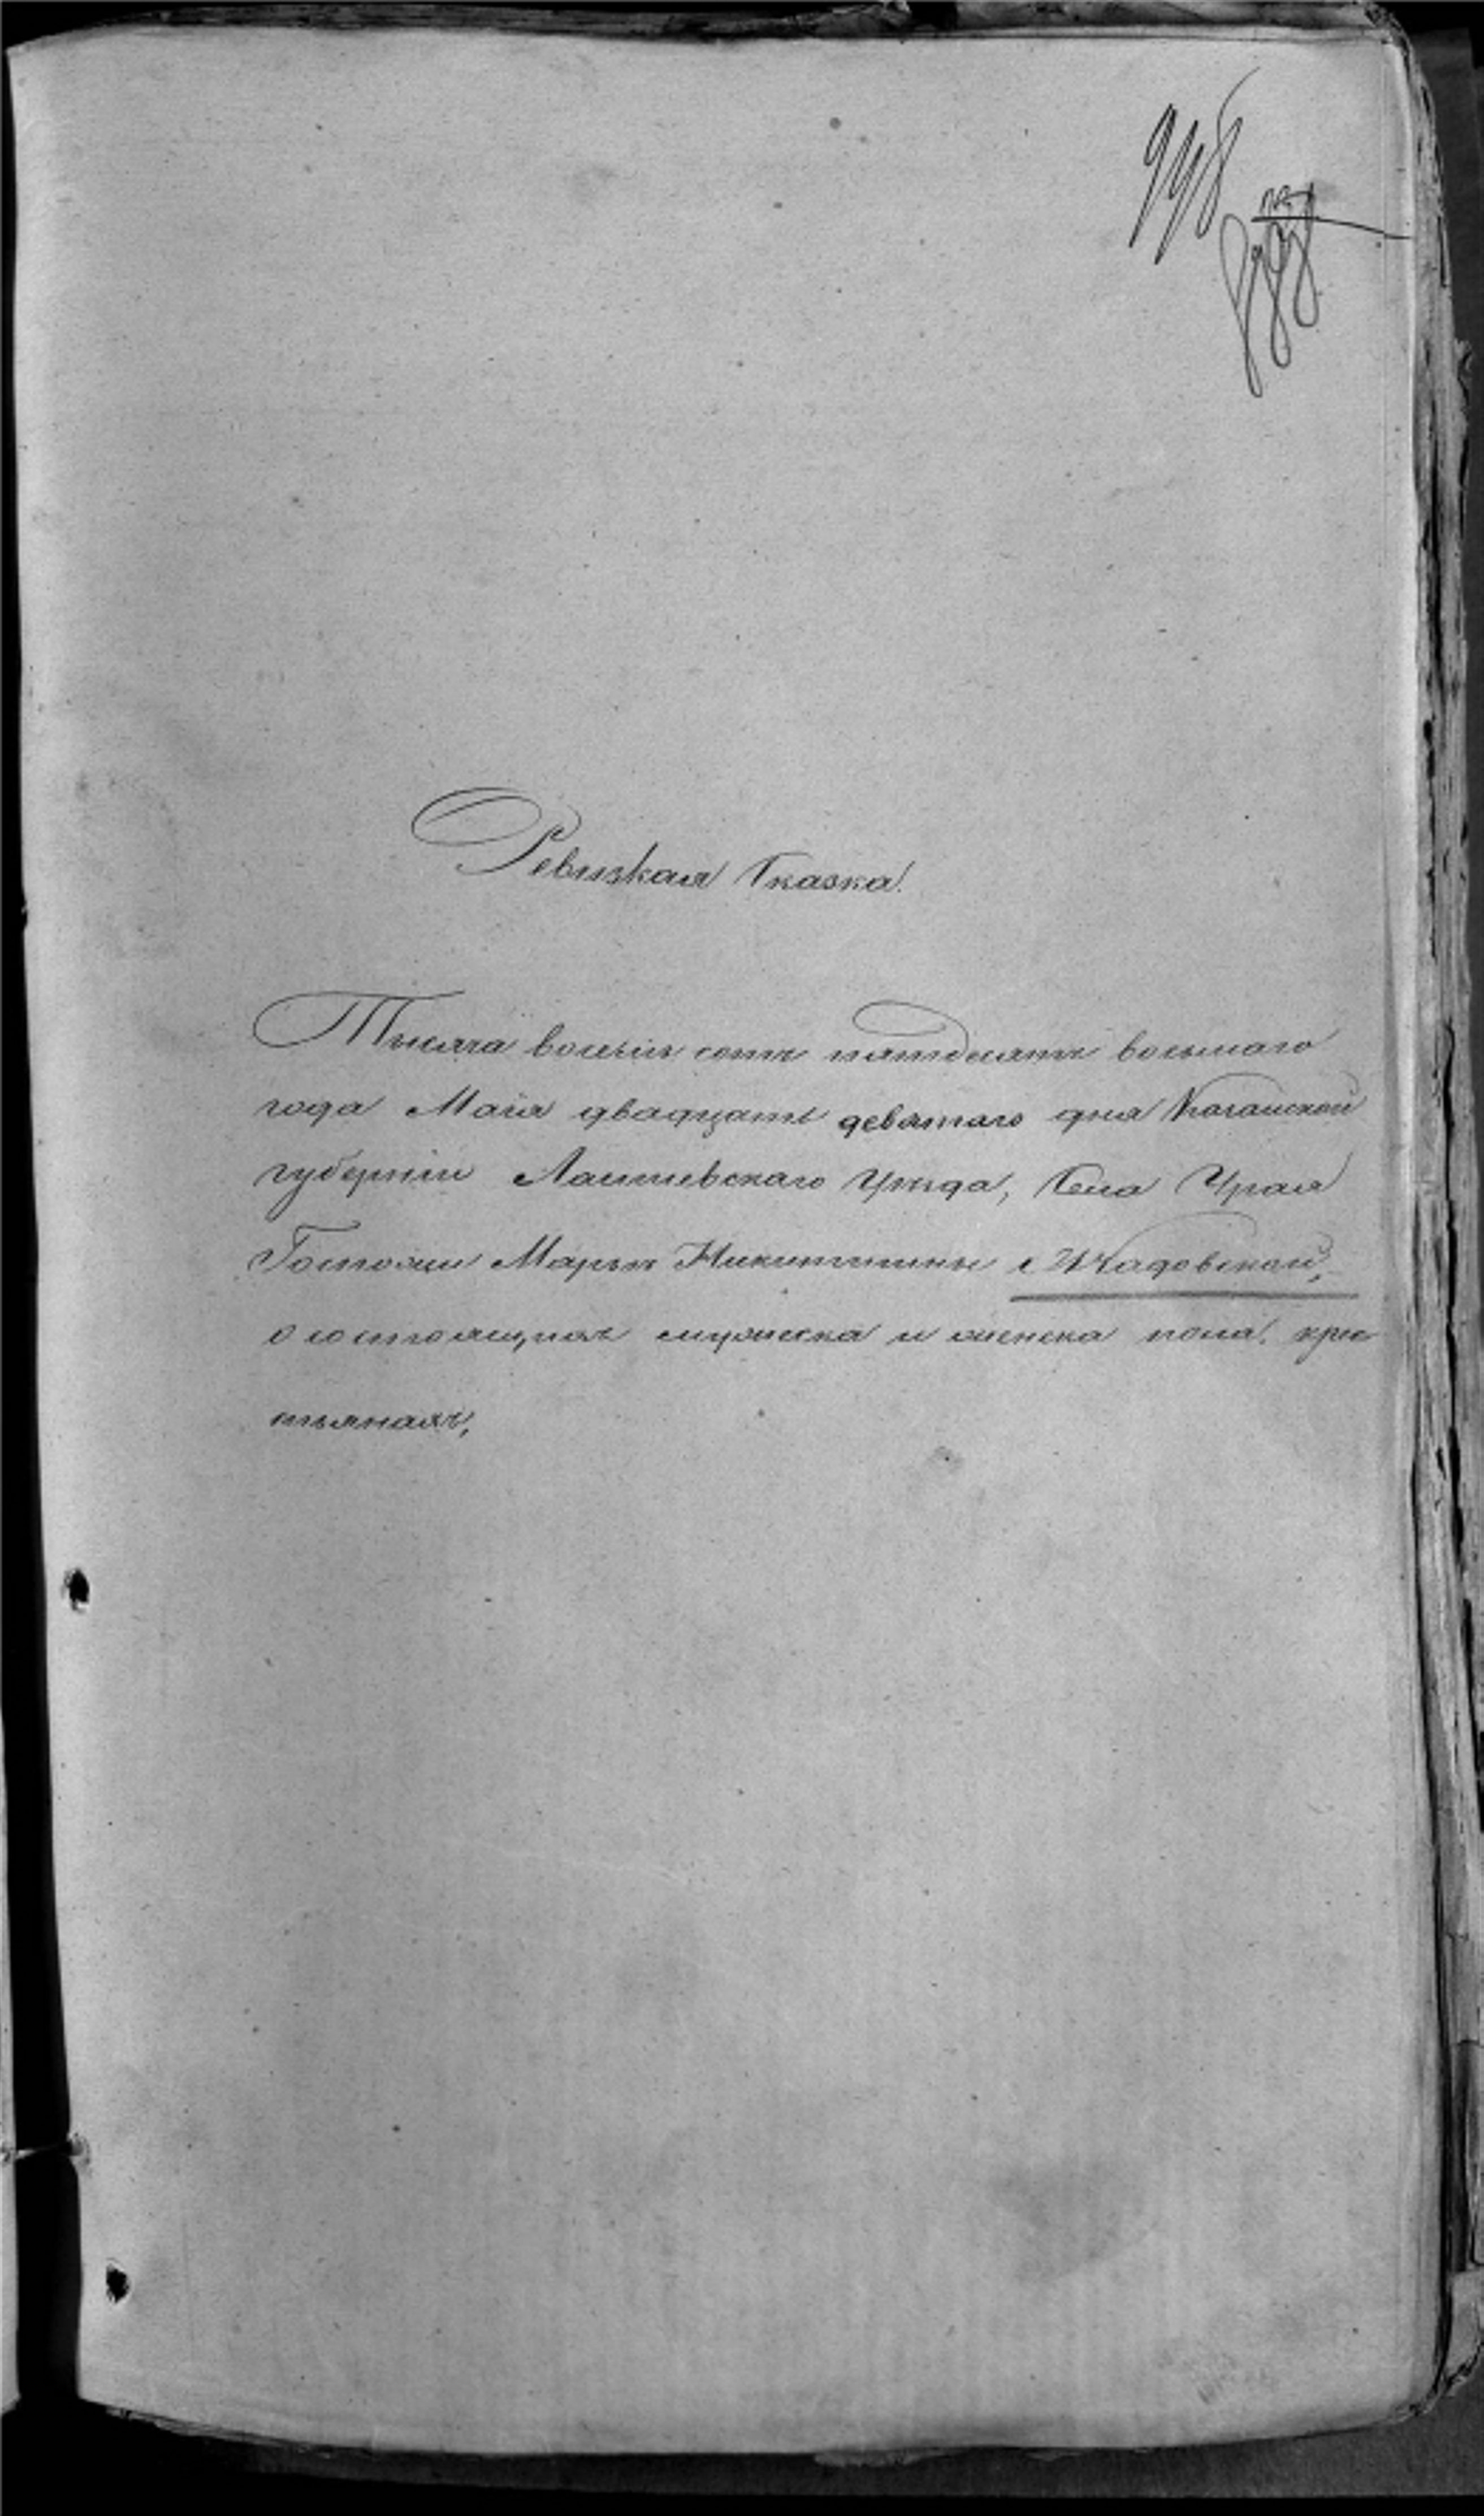 Ревизкая Сказка.
Тысяча восемь сотъ пятдесятъ восьмаго
года Маія двадцать девятаго дня Казанской
губерніи Лаишевскаго Уѣзда, Села Урая
Госпожи Марьи Никитишны Жадовской,
о состоящихъ мужеска и женска пола, крес
тьянахъ,